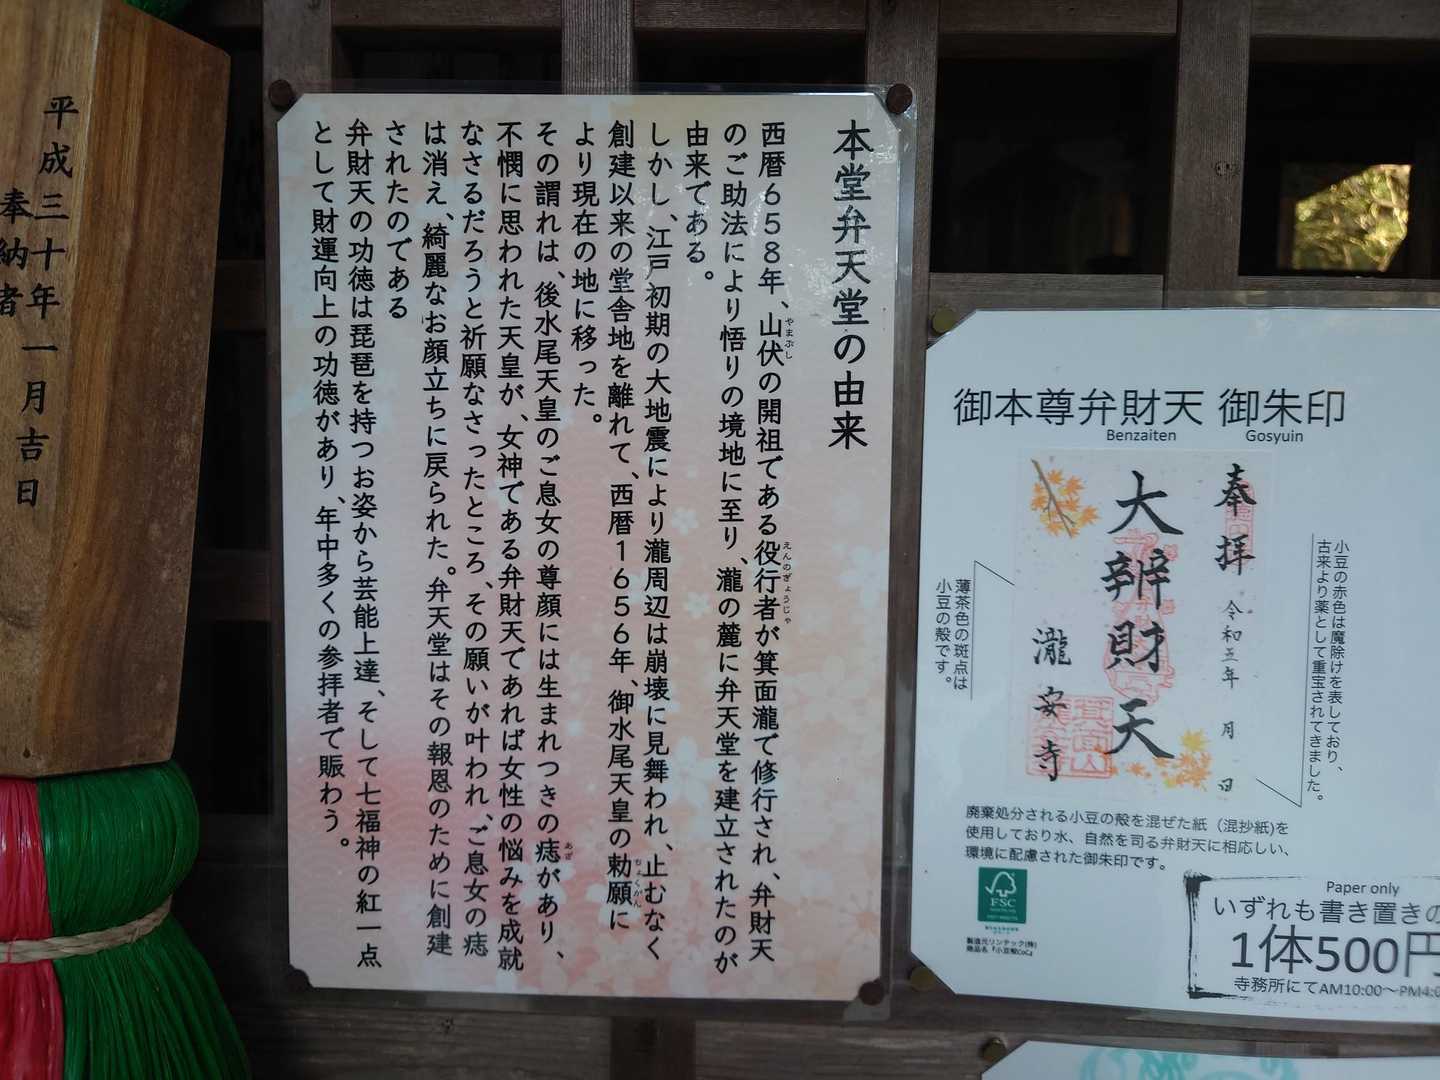 本堂弁天堂の由来
西暦６５８年、山伏の開祖である役行者が箕面瀧で修行され、弁財天
やまぶし
えんのぎょうじゃ
のご助法により悟りの境地に至り、瀧の麓に弁天堂を建立されたのが
由来である。
しかし、江戸初期の大地震により瀧周辺は崩壊に見舞われ、止むなく
創建以来の堂舎地を離れて、西暦１６５６年、御水尾天皇の勅願に
ちょくがん
より現在の地に移った。
その謂れは、後水尾天皇のご息女の尊顔には生まれつきの痣があり、
あざ
不憫に思われた天皇が、女神である弁財天であれば女性の悩みを成就
なさるだろうと祈願なさったところ、その願いが叶われ、ご息女の痣
は消え、綺麗なお顔立ちに戻られた。弁天堂はその報恩のために創建
されたのである
弁財天の功徳は琵琶を持つお姿から芸能上達、そして七福神の紅一点
として財運向上の功徳があり、年中多くの参拝者で賑わう。
平成三十年一月吉日
奉納者
御本尊弁財天 御朱印
Benzaiten Gosyuin
奉拝
令和五年 月 日
大辨財天
瀧安寺
小豆の赤色は魔除けを表しており、
古来より薬として重宝されてきました。
薄茶色の斑点は
小豆の殻です。
廃棄処分される小豆の殻を混ぜた紙（混抄紙)を
使用しており水、自然を司る弁財天に相応しい、
環境に配慮された御朱印です。
FSC
製造元リンテック(株)
商品名『小豆殻CoC』
Paper only
いずれも書き置きの
1体500円
寺務所にてAM10:00～PM4:0